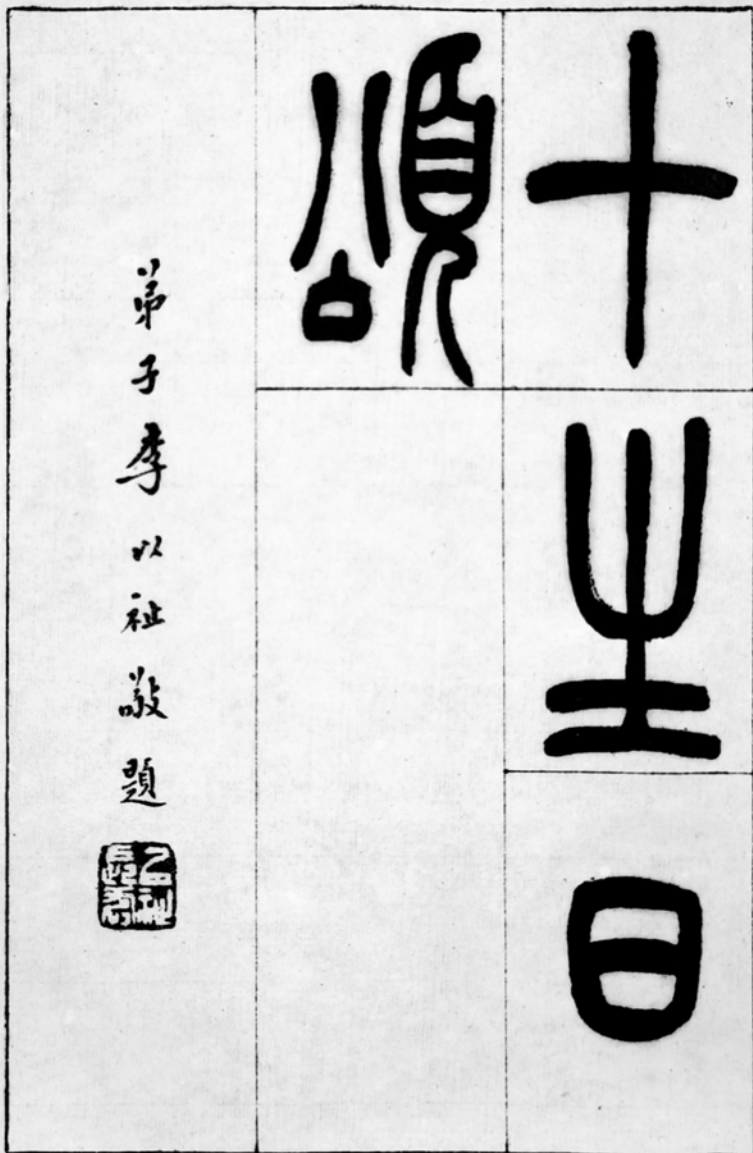 十生日
頌
弟子李以祉敬題